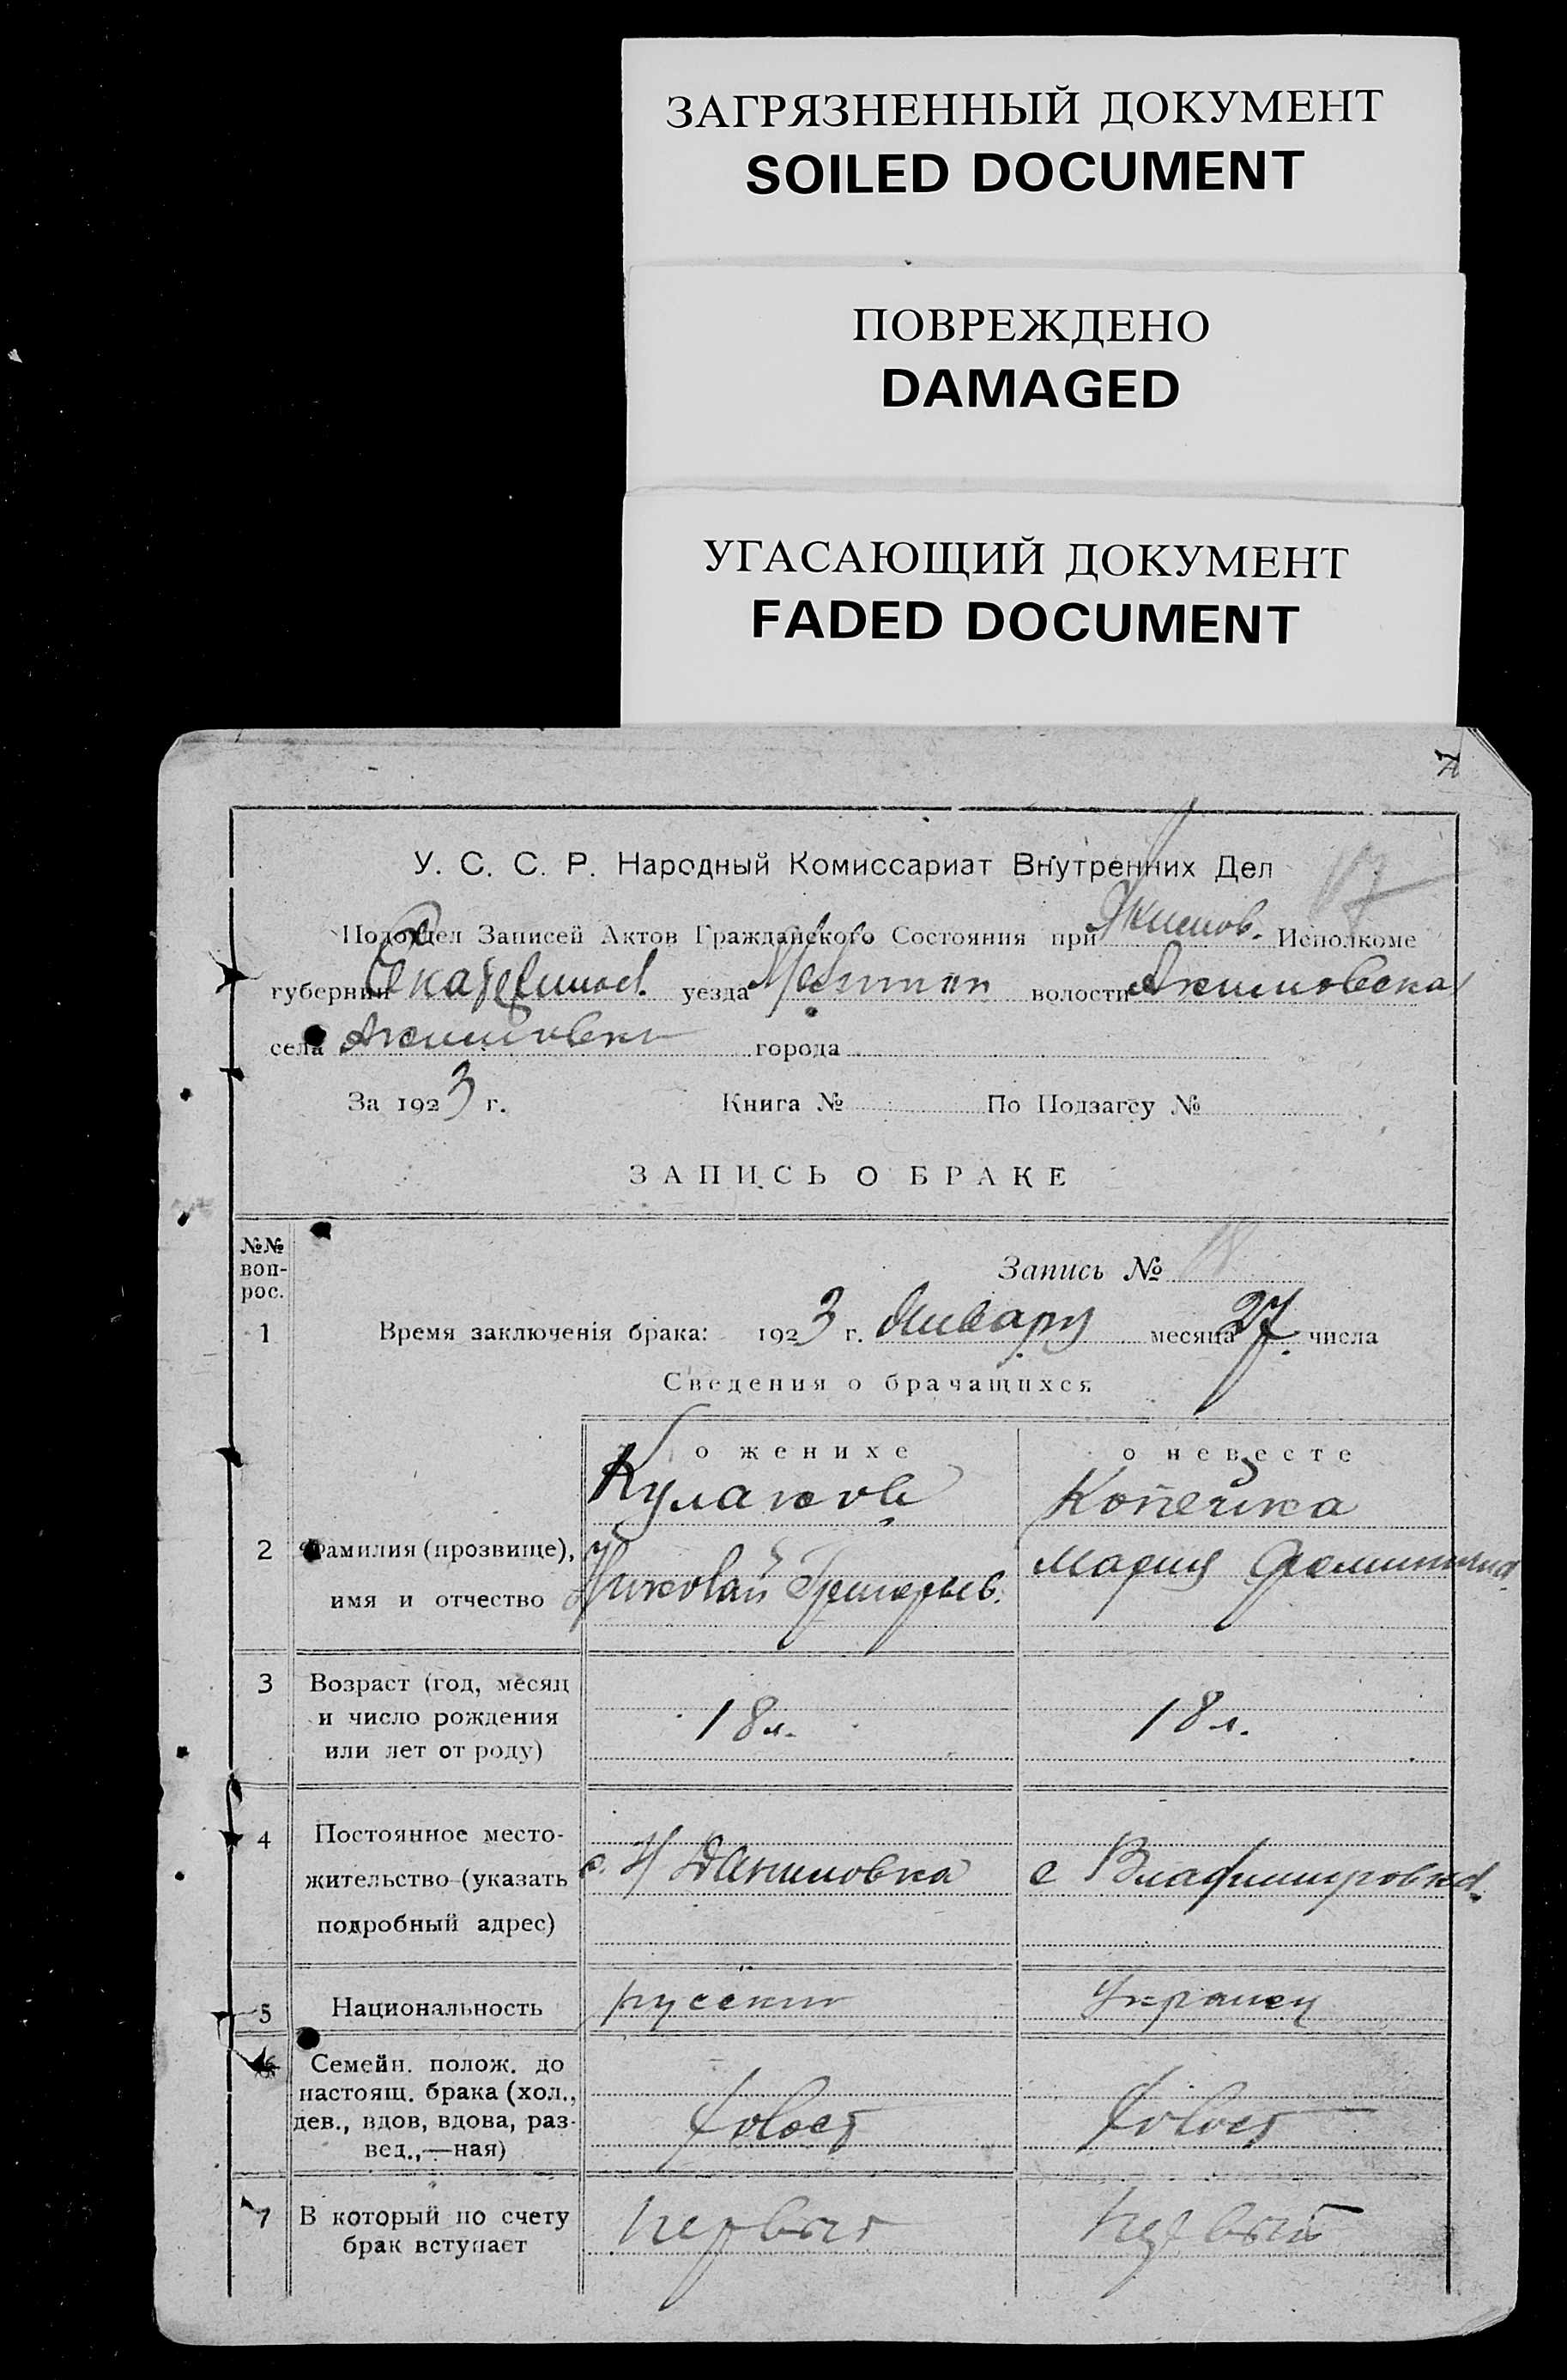 ЗАГРЯЗНЕННЫЙ ДОКУМЕНТ
SOILED DOCUMENT
ПОВРЕЖДЕНО
DAMAGED
УГАСАЮЩИЙ ДОКУМЕНТ
FADED DOCUMENT
У. С. С. Р. Народный Комиссариат Внутренних Дел
Подотдел Записей Актов Гражданского Состояния при Якимов. Исполкоме
губернии Екатеринос. уезда Мелитоп волости Акимовская
села Акимовки города
За 1923 г. Книга № По Подзагсу №
ЗАПИСЬ О БРАКЕ
№№ воп-
рос.
Запись № 18
1 Время заключенія брака: 1923 г. Январу месяца 27 числа
Сведения о брачащихся
о женихе о невесте
Кулаков Копейка
2 Фамилия (прозвище), Мария
имя и отчество Николай Григорьев.
3 Возраст (год, месяц
и число рождения 18 л. 18 л.
или лет от роду)
4 Постоянное место-
жительство (указать с. Н Даниловка с Владимировка
подробный адрес)
5 Национальность русский Украинец
6 Семейн. полож. до
настоящ. брака (хол.,
дев., вдов, вдова, раз- холост холост
вед.,—ная)
7 В который по счету первый первый
брак вступает